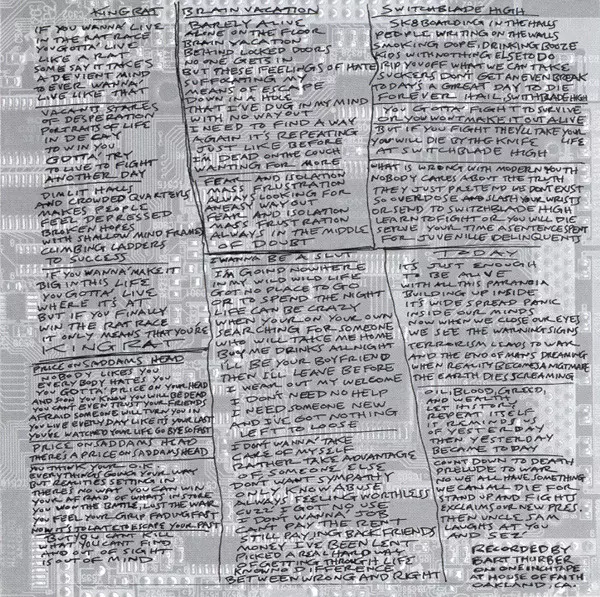 KING RAT
IF YOU WANNA' LIVE
IN THE RAT RACE
YOU GOTTA' LIVE
LIKE A RAT
SOME SAY IT TAKES
A DEVIENT MIND
TO EVER WANNA'
LIVE LIKE THAT
VACANT STARES
OF DESPERATION
PORTRAITS OF LIFE
IN DECAY
TO WIN YOU
GOTTA' TRY
TO LIVE TO FIGHT
ANOTHER DAY
DIMLIT HALLS
AND CROWDED QUARTERS
MAKES PEOPLE
FEEL DEPRESSED
BROKEN HOPES
WITH SHALLOW MIND FRAMES
CLIMBING LADDERS
TO SUCCESS
IF YOU WANNA' MAKE IT
BIG IN THIS LIFE
YOU GOTTA' LIVE
WHERE IT'S AT
BUT IF YOU FINALLY
WIN THE RAT RACE
IT ONLY MEANS THAT YOU'RE
KING RAT
PRICE ON SADDAMS HEAD
NOBODY LIKES YOU
EVERYBODY HATES YOU
YOU GOT A PRICE ON YOUR HEAD
AND SOON YOU KNOW YOU WILL BE DEAD
YOU CANT EVEN TRUST YOUR FRIENDS
AFRAID SOMEONE WILL TURN YOU IN
YOU LIVE EVERYDAY LIKE IT'S YOUR LAST
YOU'VE WATCHED YOUR LIFE GO BYE SO FAST
PRICE ON SADDAMS HEAD
THERES A PRICE ON SADDAMS HEAD
YOU THINK YOUR O.K.
EVERYTHINGS GOING YOUR WAY
BUT REALITIES SETTING IN
THERES NO WAY YOU CAN WIN
YOUR AFRAID OF WHATS IN STORE
YOU WON THE BATTLE, LOST THE WAR
YOU FEEL YOUR GRIP FADING FAST
NOW ITS TO LATE TO ESCAPE YOUR PAST
BUT YOU CANT KILL
WHAT YOU CANT FIND
AND OUT OF SIGHT
IS OUT OF MIND
BRAIN VACATION
BARELY ALIVE
ALONE ON THE FLOOR
BRAIN VACATION
BEHIND LOCKED DOORS
NO ONE GETS IN
BUT THESE FEELINGS OF HATE
SUFFOCATING MY
MEANS OF ESCAPE
DOWN IN A HOLE
THAT I'VE DUG IN MY MIND
WITH NO WAY OUT
I NEED TO FIND A WAY
AGAIN IT'S REPEATING
JUST LIKE BEFORE
I'M DEAD ON THE COUCH
WANTING FOR MORE
FEAR AND ISOLATION
MASS FRUSTRATION
ALWAYS LOOKING FOR
AN EASY WAY OUT
FEAR AND ISOLATION
MASS FRUSTRATION
ALWAYS IN THE MIDDLE
OF DOUBT
I WANNA BE A SLUT
I'M GOING NOWHERE
IN MY WILD WILD LIFE
GOT NO PLACE TO GO
OR TO SPEND THE NIGHT
LIFE CAN BE CRAZY
WHEN YOUR ON YOUR OWN
SEARCHING FOR SOMEONE
WHO WILL TAKE ME HOME
BUY ME DRINKS ALL NIGHT
I'LL BE YOUR BOYFRIEND
THEN I'LL LEAVE BEFORE
I WEAR OUT MY WELCOME
I DON'T NEED NO HELP
I NEED SOMEONE NEW
AND I'VE GOT NOTHING
LEFT TO LOOSE
DONT WANNA' TAKE
CARE OF MYSELF
RATHER TAKE ADVANTAGE
OF SOMEONE ELSE
DONT WANT SYMPATHY
ONLY KNOW ABUSE
ALWAYS FEELING WORTHLESS
CUZZ' I GOT NO USE
I DON'T WANNA' JOB
CANT PAY THE RENT
STILL PAYING BACK FRIENDS
MONEY I'VE BEEN LENT
PICKED A REAL HARD WAY
OF GETTING THROUGH LIFE
KNOWNO DIFFERENCE
BETWEEN WRONG AND RIGHT
SWITCHBLADE HIGH
SK8BOARDING IN THE HALLS
PEOPLE WRITING ON THE WALLS
SMOKING DOPE, DRINKING BOOZE
KIDS WITH NOTHING ELSE TO DO
RIP YOU OFF WHAT WE CAN TAKE
SUCKERS DONT GET AN EVEN BREAK
TODAYS A GREAT DAY TO DIE
FOREVER HAIL, SWITCHBLADE HIGH
YOU GOTTA' FIGHT TO SURVIVE
OR YOU WONT MAKE IT OUT ALIVE
BUT IF YOU FIGHT THEY'LL TAKE YOUR LIFE
YOU WILL DIE BY THE KNIFE
AT SWITCHBLADE HIGH
WHAT IS WRONG WITH MODERN YOUTH
NOBODY CARES ABOUT THE TRUTH
THEY JUST PRETEND WE DONT EXIST
SO OVERDOSE AND SLASH YOUR WRISTS
OR SEND TO SWITCHBLADE HIGH
LEARN TO FIGHT OR YOU WILL DIE
SERVE YOUR TIME A SENTENCE SPENT
FOR JUVENILLE DELINQUENTS
TODAY
IT'S JUST ENOUGH
TO BE ALIVE
WITH ALL THIS PARANOIA
BUILDING UP INSIDE
IT'S WIDE SPREAD PANIC
INSIDE OUR MINDS
NOW WHEN WE CLOSE OUR EYES
WE SEE THE WARNING SIGNS
TERRORISM LEADS TO WAR
AND THE END OF MANS DREAMING
WHEN REALITY BECOMES A NIGHTMARE
THE EARTH DIES SCREAMING
OIL, BLOOD, GREED,
AND WEALTH
LET HISTORY
REPEAT ITSELF
IF REMINDS US
OF YESTERDAY
THEN YESTERDAY
BECAME TODAY
COUNT DOWN TO DEATH
PRELUDE TO WAR
NO WE ALL HAVE SOMETHING
WE CAN ALL DIE FOR
STAND UP AND FIGHT
EXCLAIMS OUR NEW PRES.
THEN UNCLE SAM
LAUGHS AT YOU
AND SEZ'
RECORDED BY
BART THURBER
ON ONE INCH TAPE
AT HOUSE OF FAITH
OAKLAND, CA.